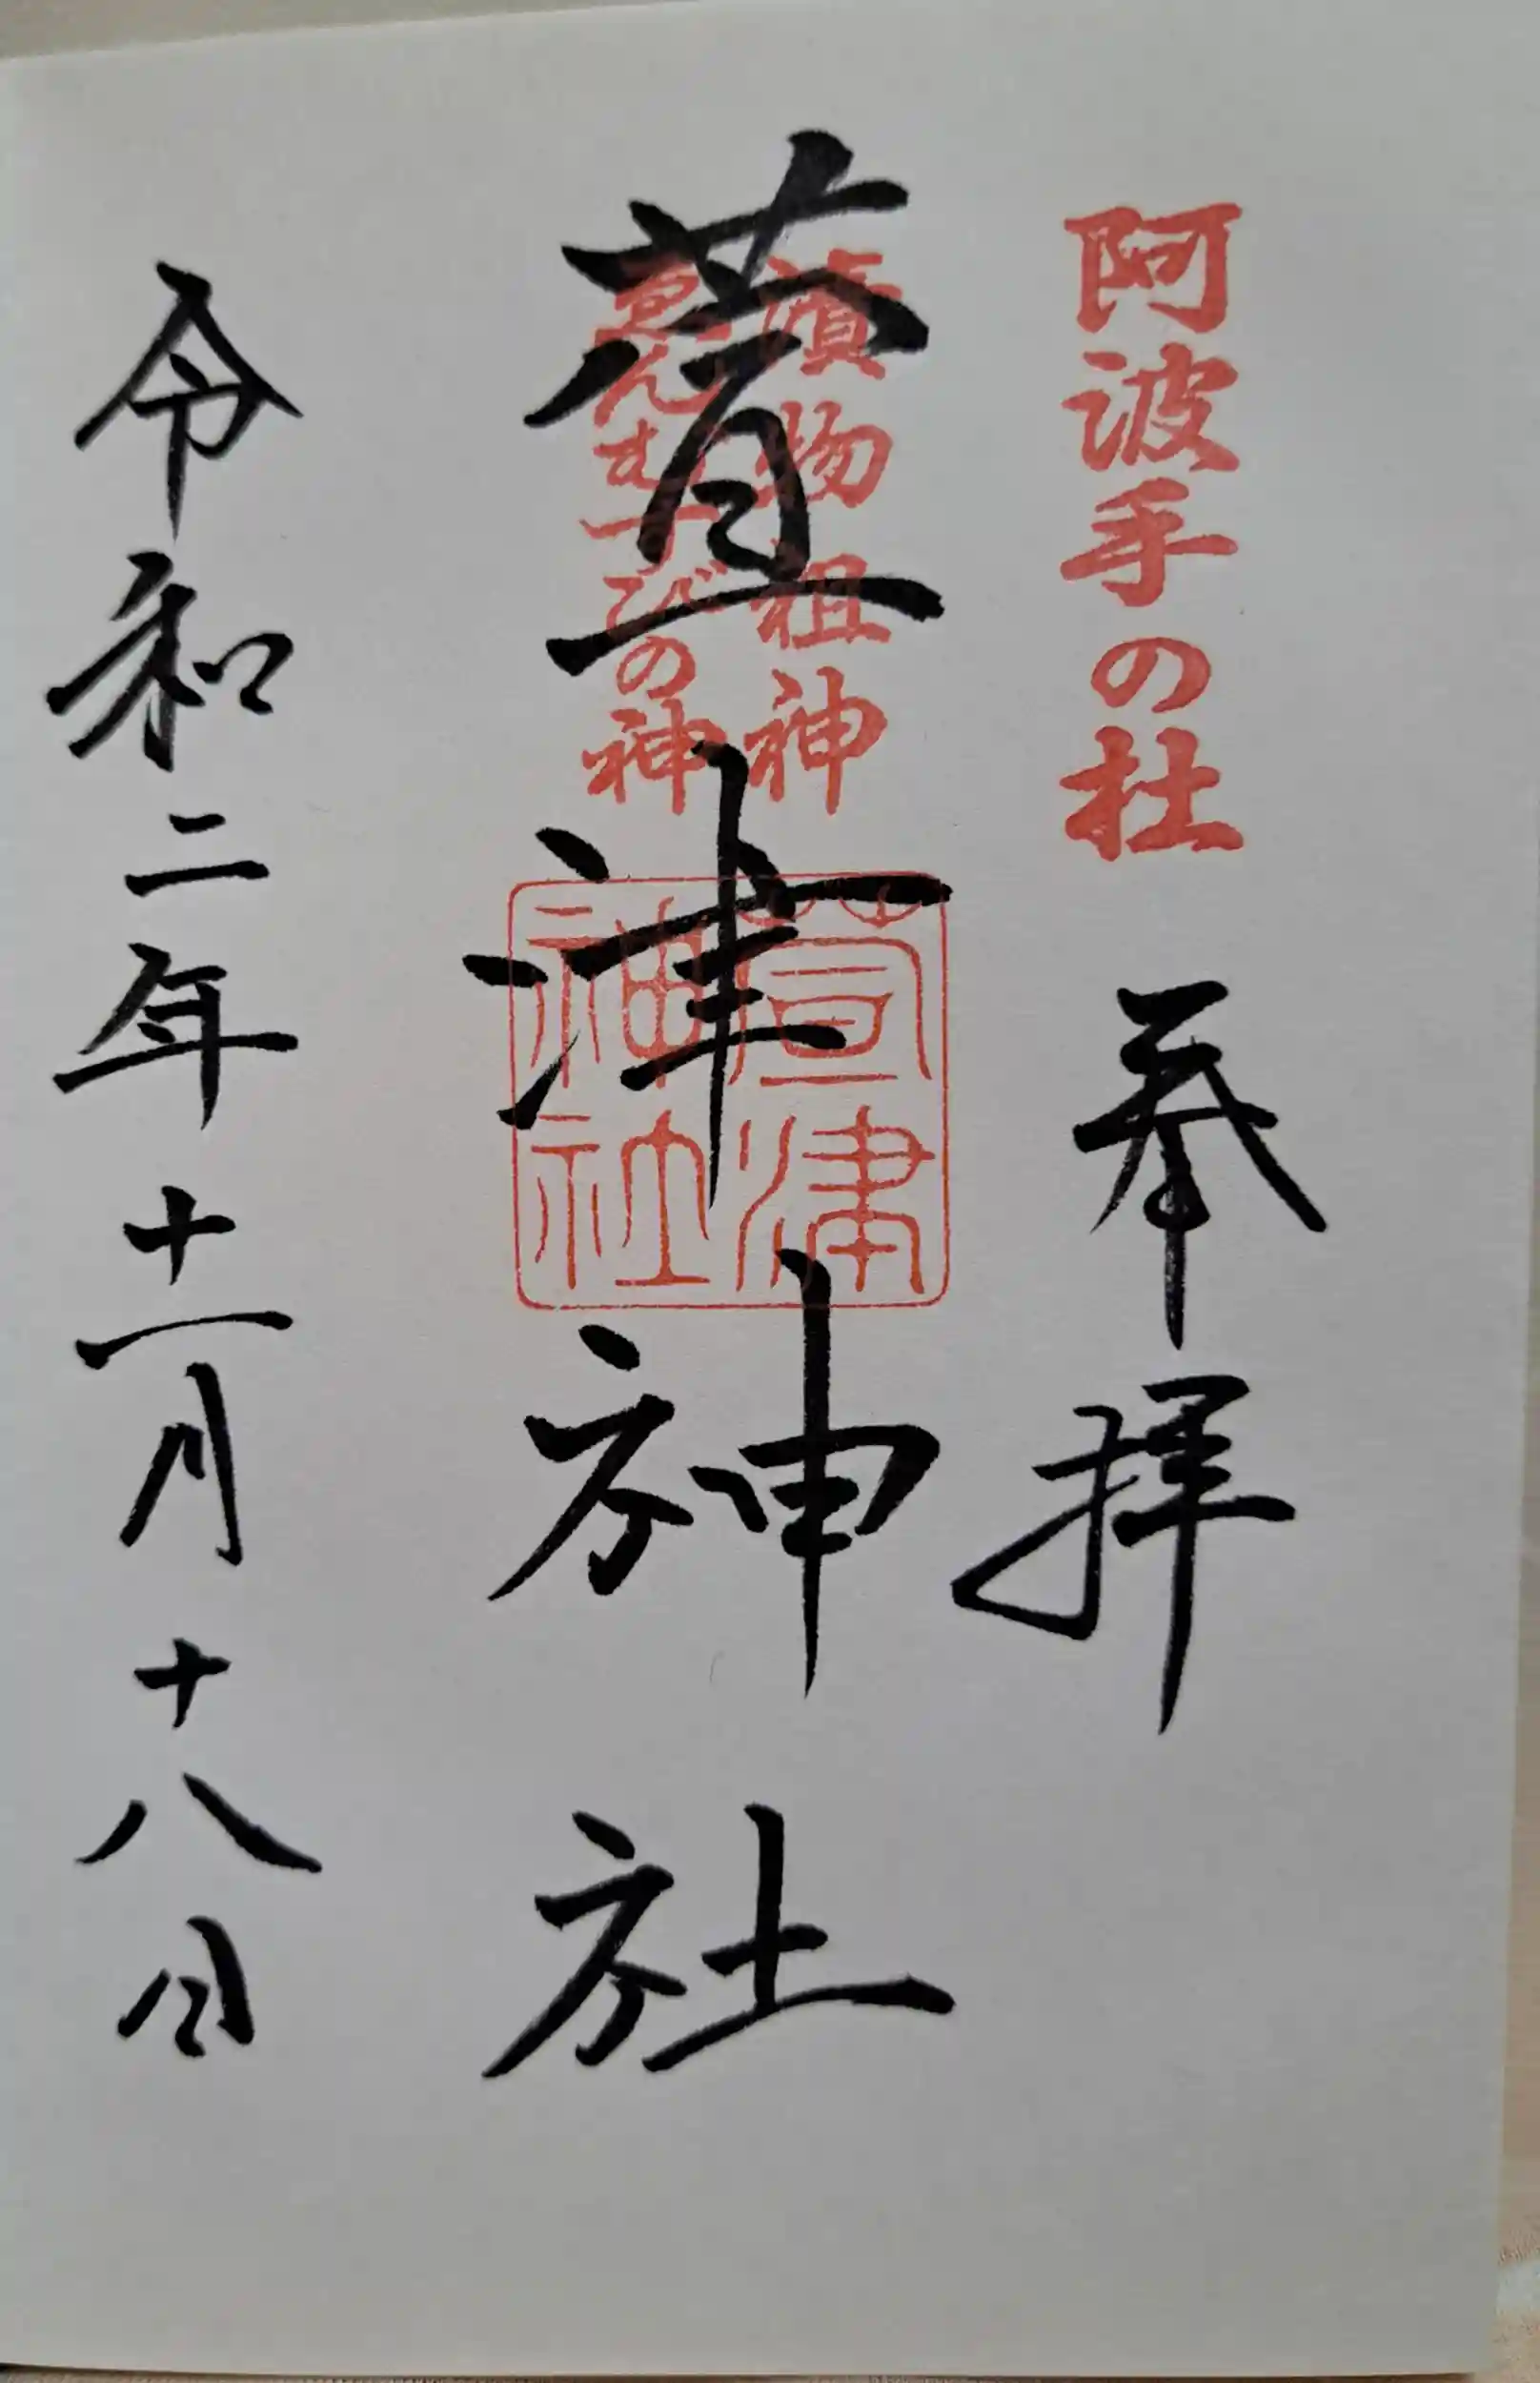 阿波手の杜
奉拝
漬物祖神
ゑんむすびの神
萱津神社
萱津
神社
令和二年十一月十八日